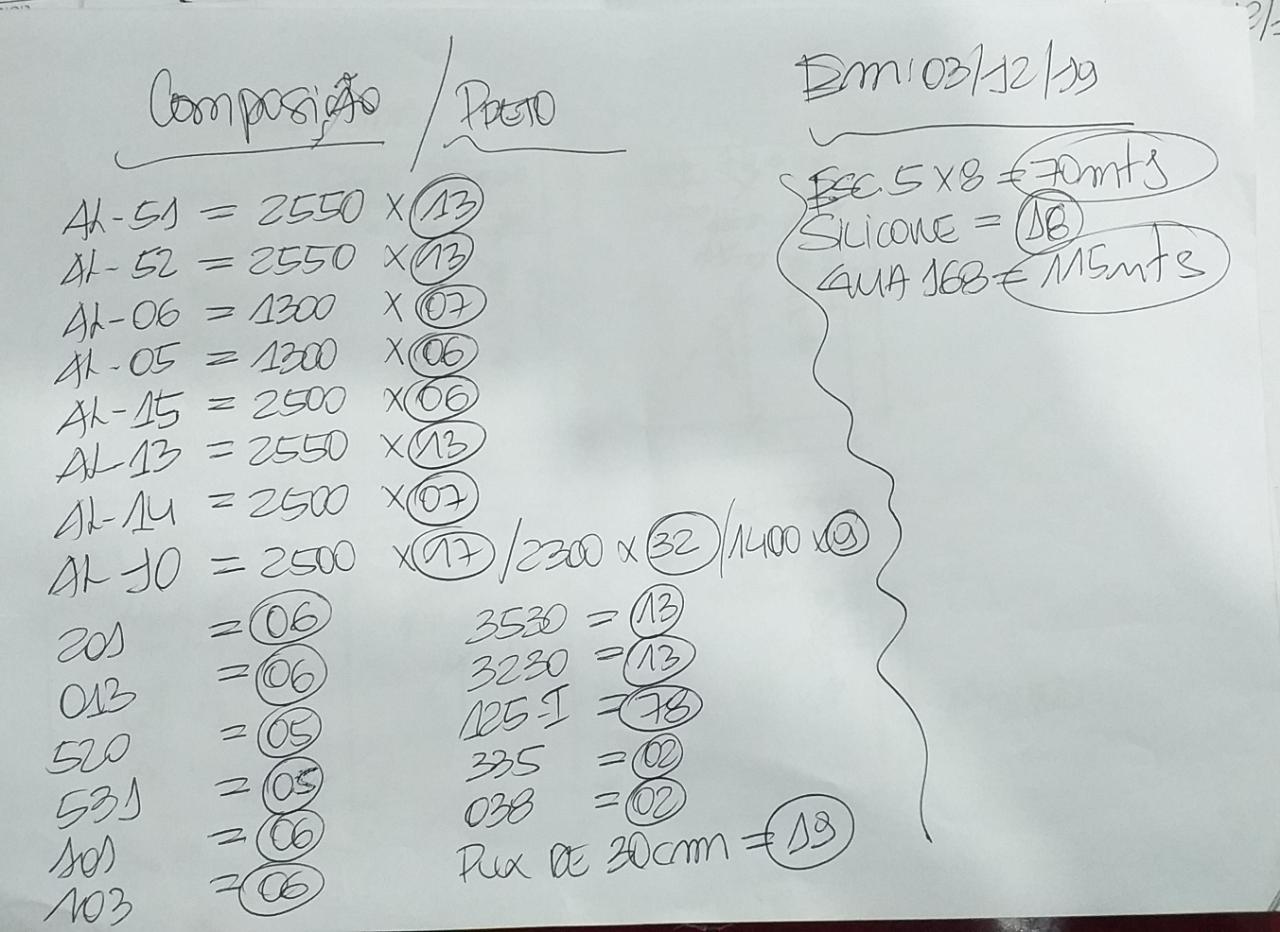 Composição / PRETO
AL-51 = 2550 x 13
AL-52 = 2550 x 13
AL-06 = 1300 x 07
AL-05 = 1300 x 06
AL-15 = 2500 x 06
AL-13 = 2550 x 13
AL-14 = 2500 x 07
AL-10 = 2500 x 17 / 2300 x 32 / 1400 x 9
201 = 06
013 = 06
520 = 05
531 = 05
101 = 06
103 = 06
3530 = 13
3230 = 13
125-I = 78
335 = 02
038 = 02
Pux DE 30cm = 19
Em: 03/12/19
ESC. 5x8 = 70mts
SILICONE = 18
GUA 168 = 115mts